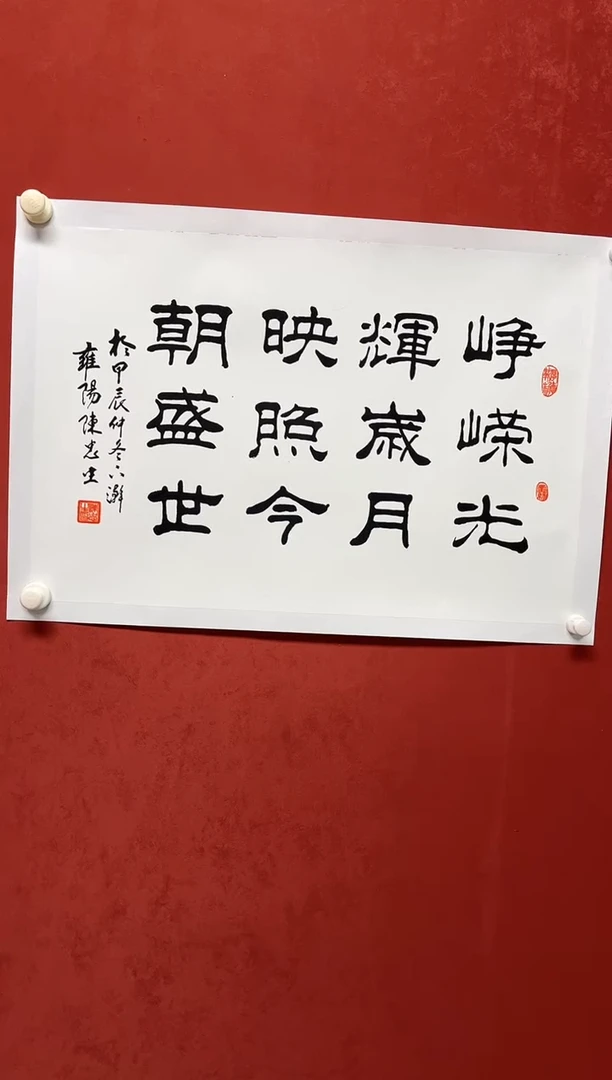 峥嵘光
輝歲月
映照今
朝盛世
於甲辰仲冬
雍陽陳忠